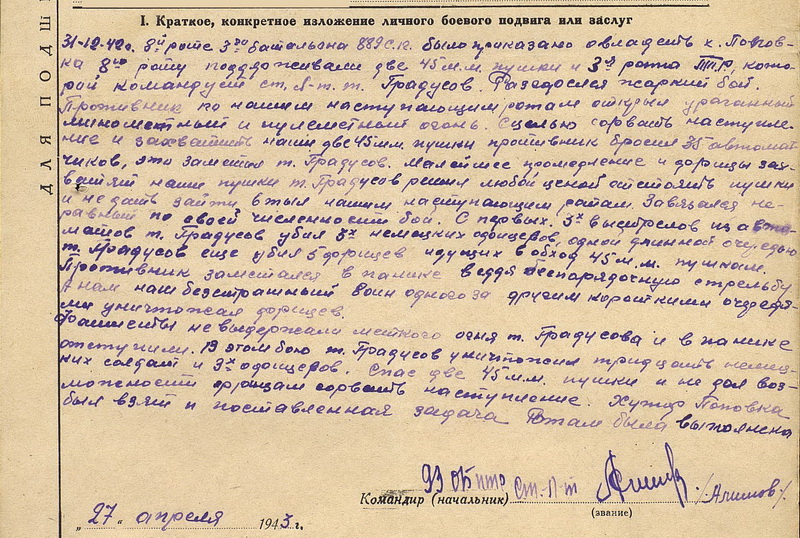 ДЛЯ ПОДШ
I. Краткое, конкретное изложение личного боевого подвига или заслуг
31-12-42г. 8й роте 3го батальона 889 с.п. было приказано овладеть х. Попов-
ка 8ую роту поддерживали две 45м.м. пушки и 3я рота ПТР, кото-
рой командует ст. Л-т т. Градусов. Разгорелся жаркий бой.
Противник по нашим наступающим ротам открыл ураганный
минометный и пулеметный огонь. С целью сорвать наступле-
ние и захватить наши две 45мм. пушки противник бросил 35 автомат
чиков, это заметил т. Градусов. Малейшее промедление и фрицы зах-
ватят наши пушки т. Градусов решил любой ценой отстоять пушки
и не дать зайти в тыл нашим наступающим ротам. Завязался не-
равный по своей численности бой. С первых 3х выстрелов из авто-
матов т. Градусов убил 3х немецких офицеров, одной длинной очередью
т. Градусов еще убил 5 фрицев идущих в обход 45м.м. пушкам.
Противник заметался в панике ведя беспорядочную стрельбу
А нам наш безстрашный воин одного за другим короткими очередя-
ми уничтожал фрицев.
Фашисты не выдержали меткого огня т. Градусова и в панике
отступили. В этом бою т. Градусов уничтожил тридцать немец-
ких солдат и 3х офицеров. Спас две 45м.м. пушки и не дал воз-
можности фрицам сорвать наступление. Хутор Поповка
был взят и поставленная задача была выполнена
93 ОБ птр
Командир (начальник) Ст. Л-т /Алимов/.
(звание)
„27" апреля 1943 г.